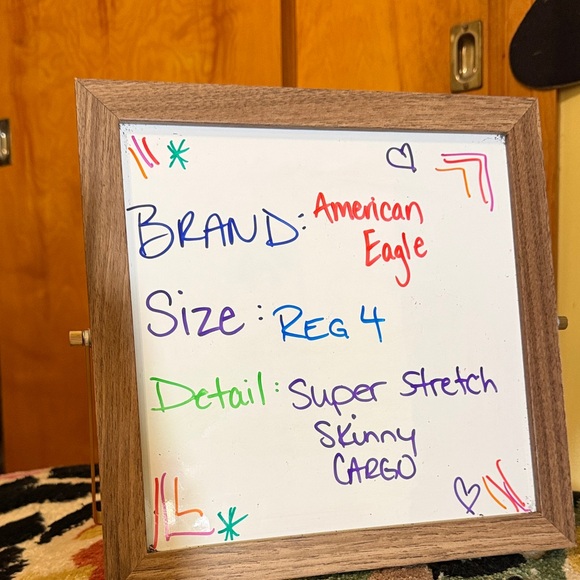 BRAND: American
Eagle
Size: REG 4
Detail: Super Stretch
Skinny
CARGO